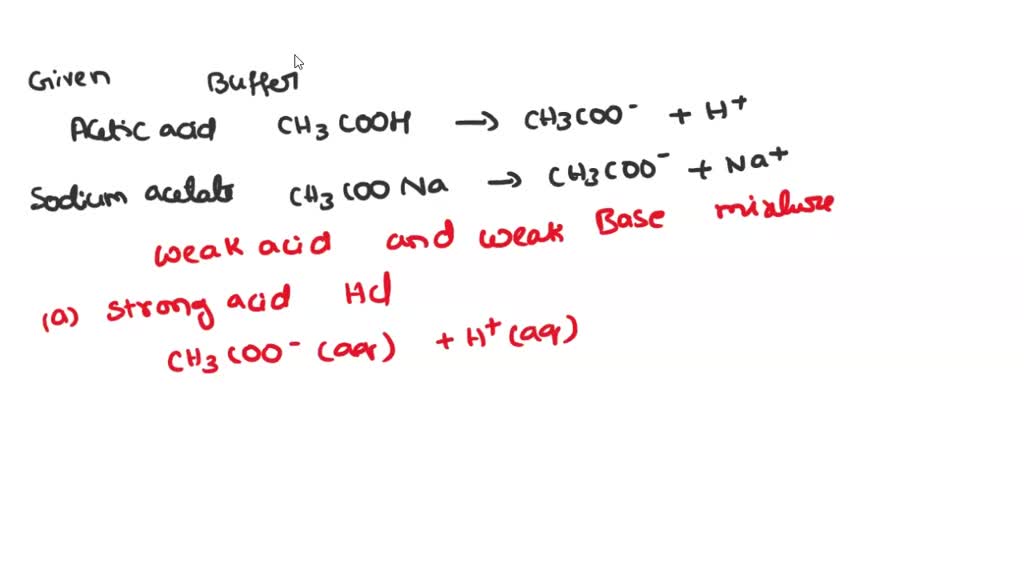 Given Buffer
Acetic acid CH3COOH → CH3COO⁻ + H⁺
Sodium acetate CH3COONa → CH3COO⁻ + Na⁺
weak acid and weak Base mixture
(a) strong acid HCl
CH3COO⁻ (aq) + H⁺ (aq)